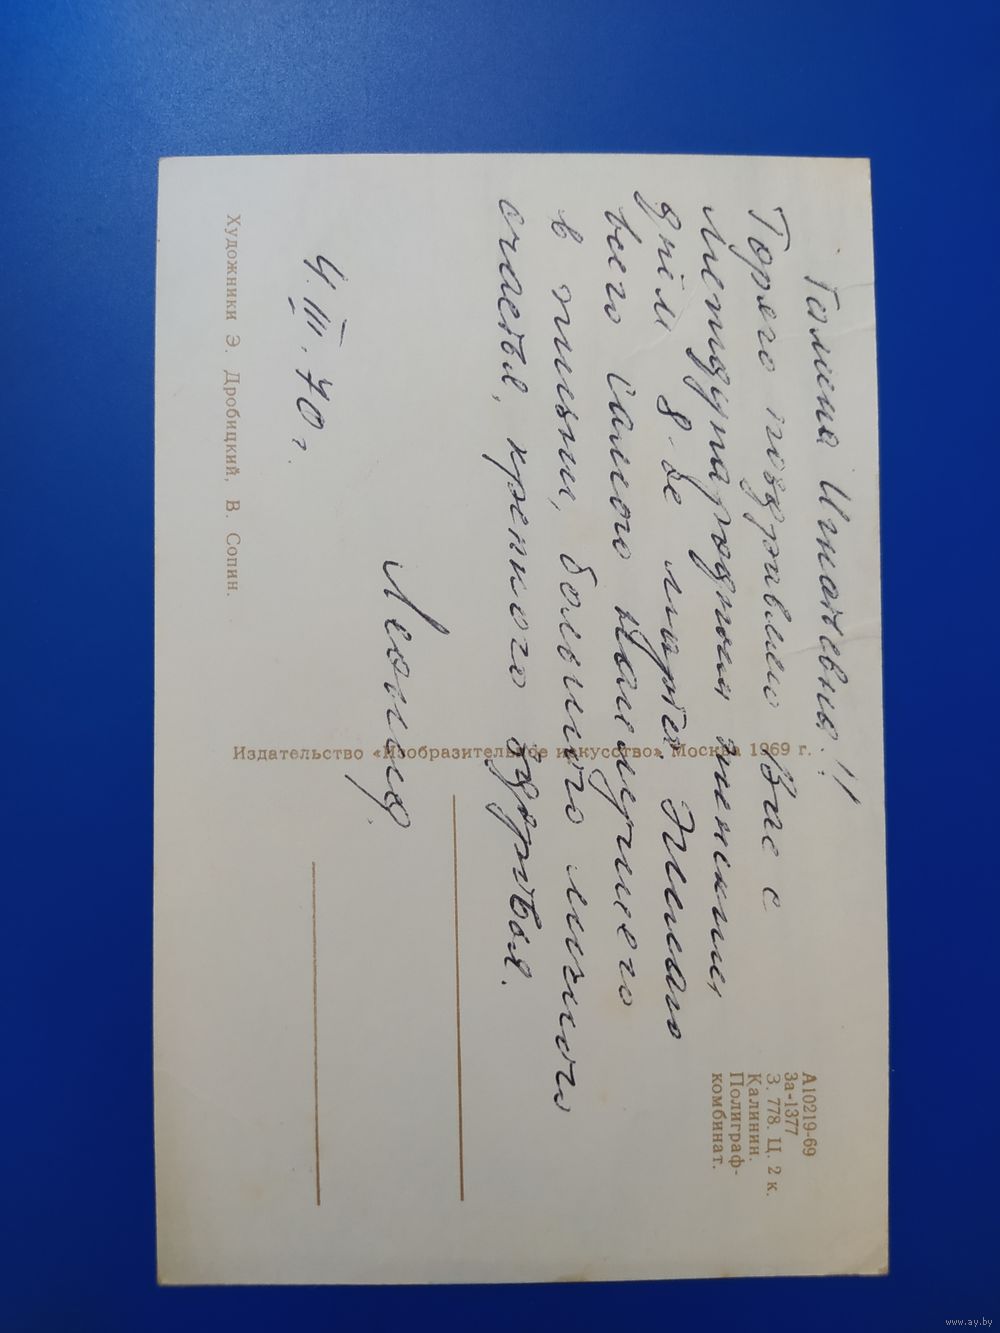 Галина Игнатьевна!!
Горячо поздравляю Вас с
Международным женским
днём 8-ое марта. Желаю
всего самого наилучшего
в жизни, большого личного
счастья, крепкого здоровья.
Леонид.
4.III.70 г.
Художники Э. Дробицкий, В. Сопин.
Издательство «Изобразительное искусство». Москва 1969 г.
А10219-69
За-1377
З. 778. Ц. 2 к.
Калинин.
Полиграф-
комбинат.
www.ay.by